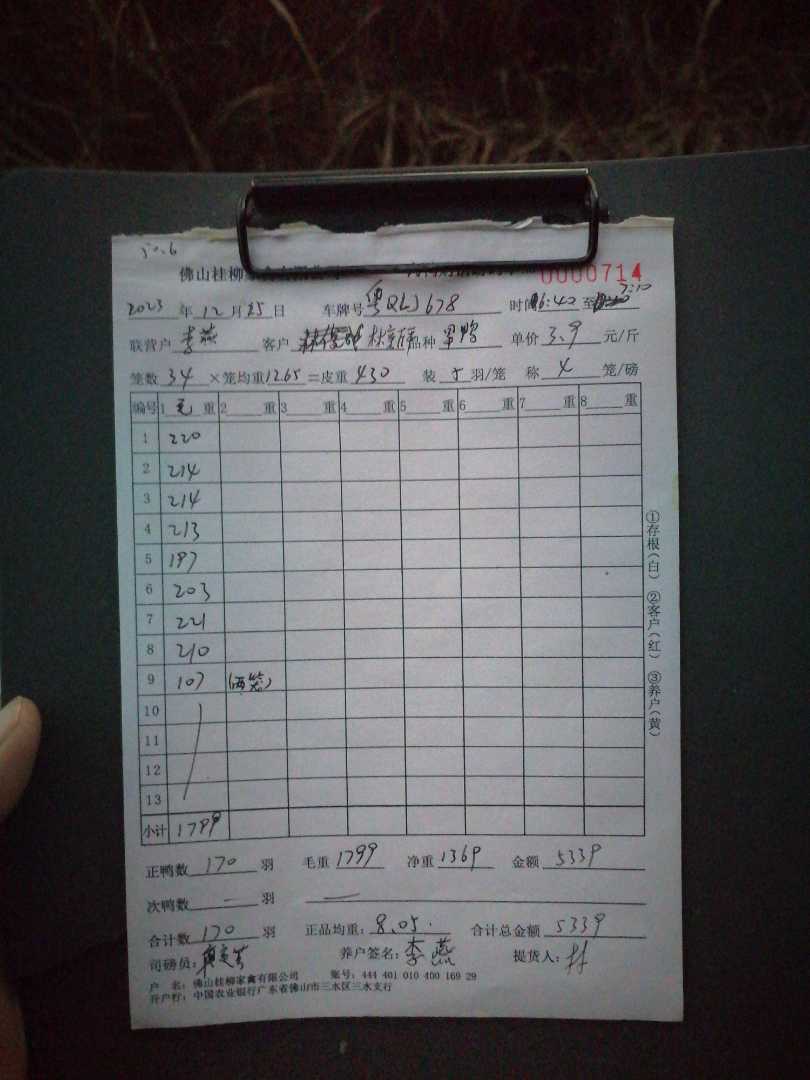 50.6
佛山桂柳家禽有限公司
0000714
2023 年 12 月 25 日 车牌号 粤QLJ678 时间 16:42 至 7:10
联营户 李燕 客户 品种 单价 3.9 元/斤
笼数 34 ×笼均重 12.65 =皮重 430 装 5 羽/笼 称 4 笼/磅
编号 1 毛 重 2 重 3 重 4 重 5 重 6 重 7 重 8 重
1 220
2 214
3 214
4 213
5 197
6 203
7 221
8 210
9 107 (两笼)
10
11
12
13
小计 1799
正鸭数 170 羽 毛重 1799 净重 1369 金额 5339
次鸭数 — 羽 —
合计数 170 羽 正品均重: 8.05. 合计总金额 5339
司磅员: 养户签名: 李燕 提货人: 林
户 名: 佛山桂柳家禽有限公司 账号: 444 401 010 400 169 29
开户行: 中国农业银行广东省佛山市三水区三水支行
①存根(白) ②客户(红) ③养户(黄)